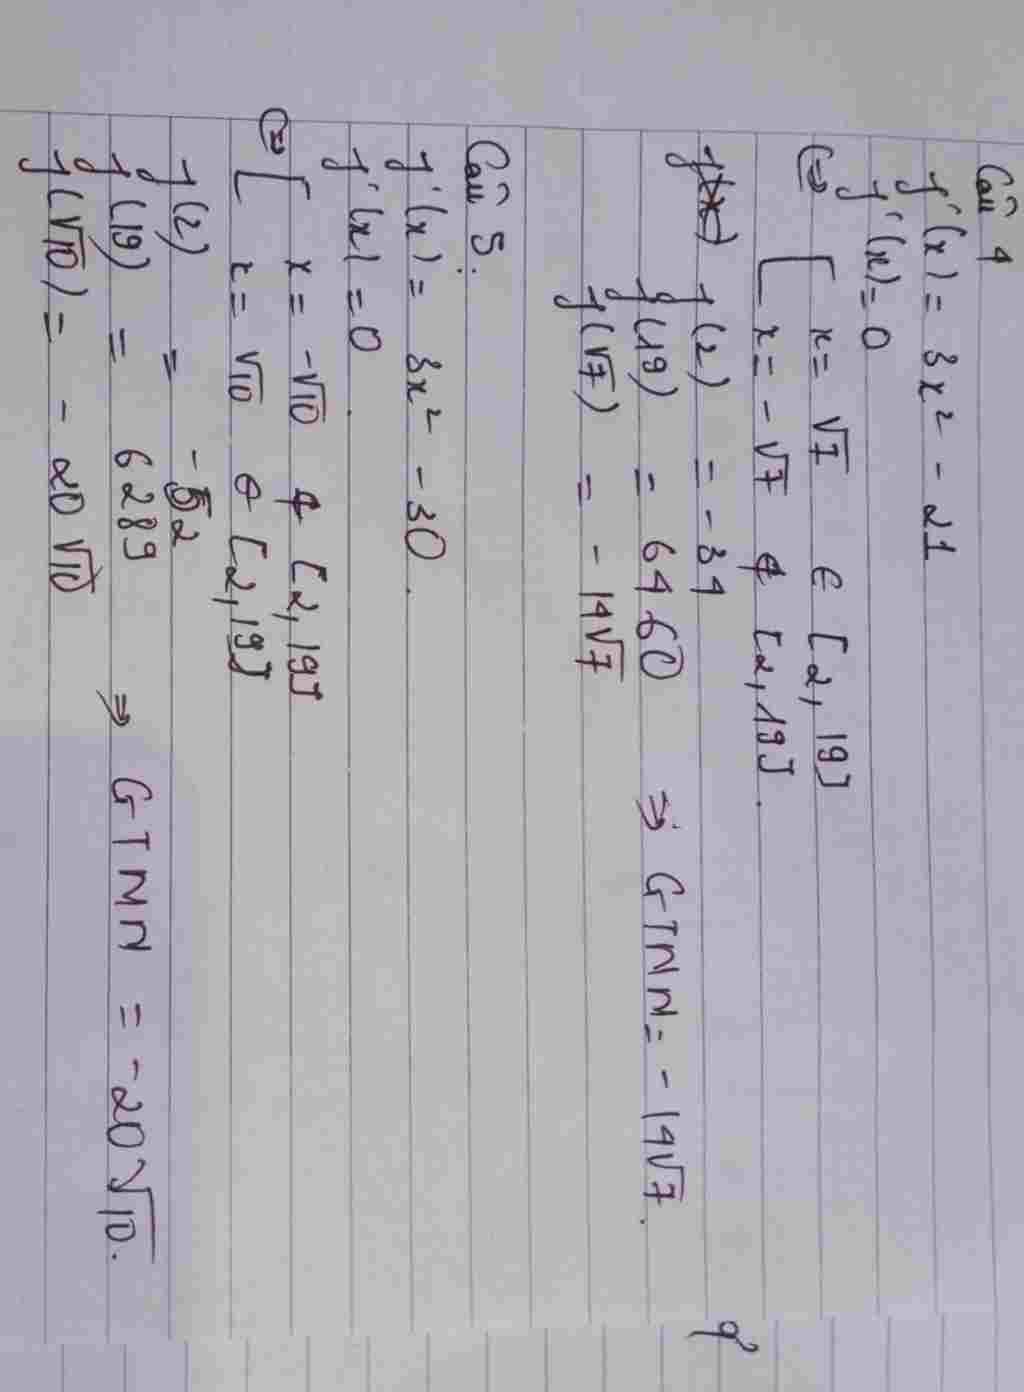 Câu 4
f'(x) = 3x² - 21
f'(x) = 0
⇔ [ x = √7 ∈ [2, 19]
x = -√7 ∉ [2, 19].
f(2) = -34
f(19) = 6460 ⇒ GTNN = -14√7.
f(√7) = -14√7
Câu 5.
f'(x) = 3x² - 30.
f'(x) = 0
⇔ [ x = -√10 ∉ [2, 19]
x = √10 ∈ [2, 19]
f(2) = -52
f(19) = 6289 ⇒ GTNN = -20√10.
f(√10) = -20√10